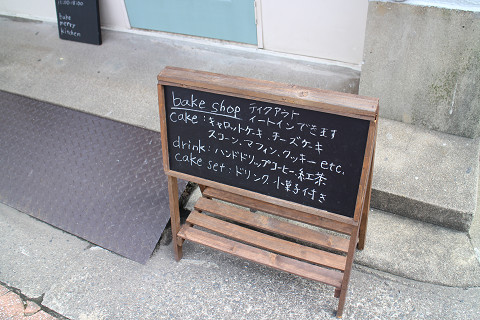 bake
merry
kitchen
bake shop テイクアウト
イートインできます
cake : キャロットケーキ、チーズケーキ
スコーン、マフィン、クッキー etc.
drink : ハンドドリップコーヒー、紅茶
cake set : ドリンク、小菓子付き